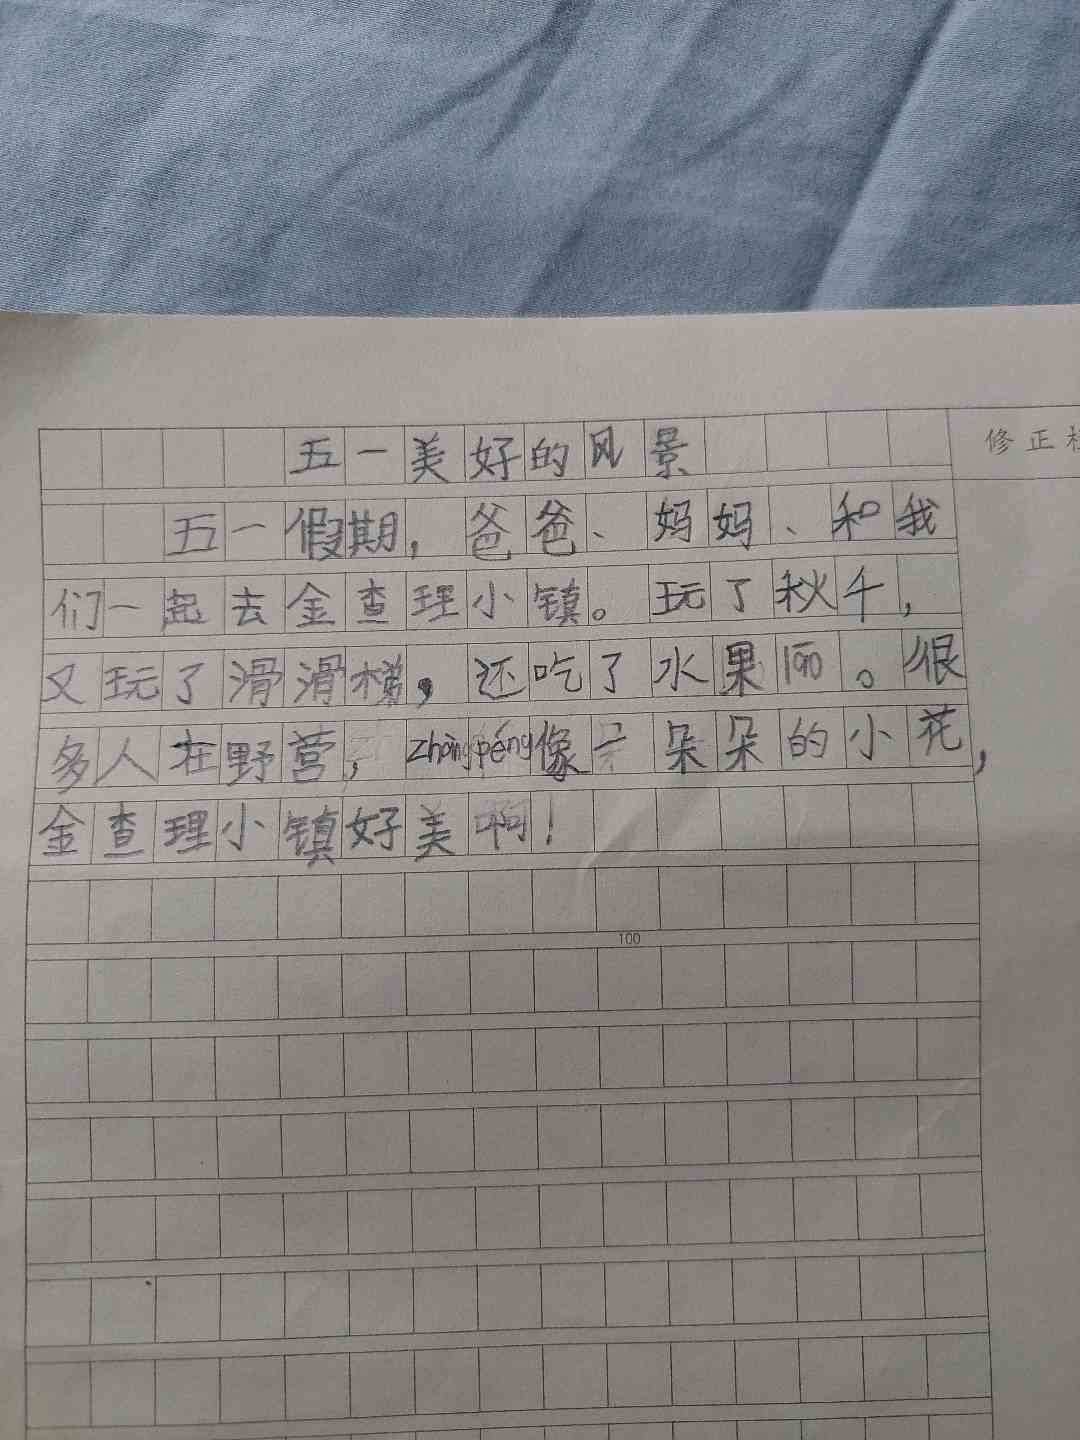 五一美好的风景
修正栏
五一假期，爸爸、妈妈、和我
们一起去金查理小镇。玩了秋千，
又玩了滑滑梯，还吃了水果。很
多人在野营，zhàngpéng像一朵朵的小花，
金查理小镇好美啊！
100